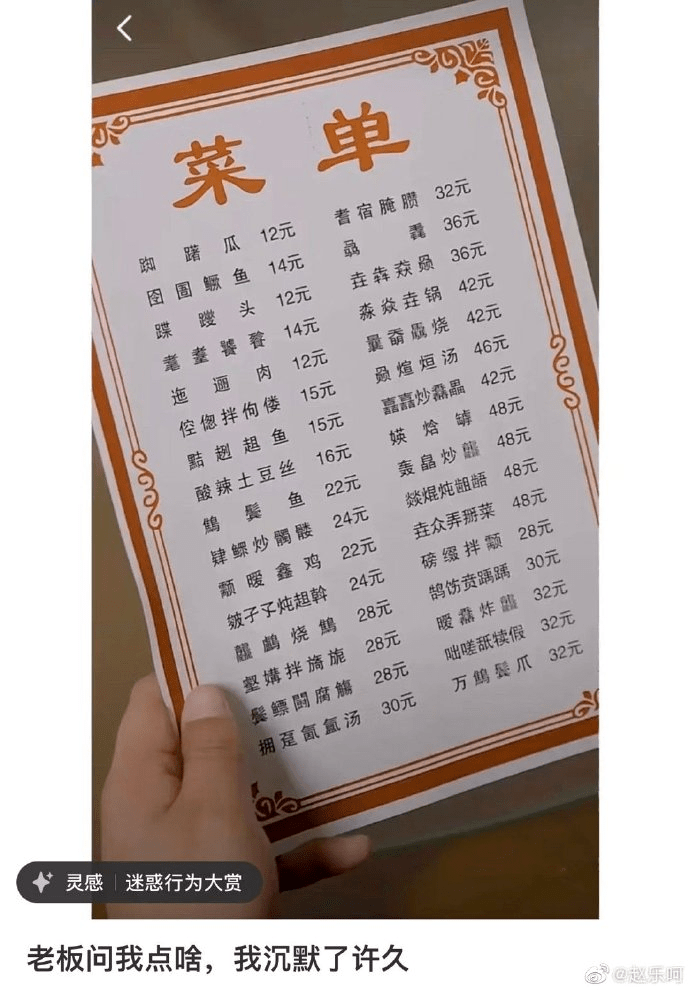 菜单
踟躇瓜 12元
囹圄鳜鱼 14元
蹀躞头 12元
耄耋饕餮 14元
迤逦肉 12元
倥偬拌佝偻 15元
黠趔趄鱼 15元
酸辣土豆丝 16元
鬓鱼 22元
肄鳏炒髑髅 24元
颥暧鑫鸡 22元
皴孑孓炖趄斡 24元
龘烧 28元
壑媾拌旖旎 28元
鬓鳔腐觞 28元
拥趸氤氲汤 30元
耆宿腌臜 32元
毳 36元
垚犇猋骉 36元
淼焱垚锅 42元
烧 42元
骉煊烜汤 46元
嚞嚞炒馫畾 42元
媖烚罅 48元
轰皛炒龘 48元
燚焜炖龃龉 48元
垚众弄掰菜 48元
磅缀拌颥 28元
鹄饬贲踽踽 30元
暧馫炸龘 32元
咄嗟舐犊假 32元
万鬓爪 32元
灵感 | 迷惑行为大赏
老板问我点啥，我沉默了许久
@赵乐呵